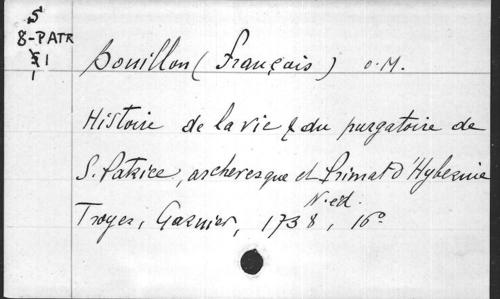 S
8-PATR
1
1
Bouillon (François) O.M.
Histoire de la vie & du purgatoire de
S. Patrice, archevesque et Primat d'Hybernie
N. ed.
Troyes, Garnier, 1738, 16º